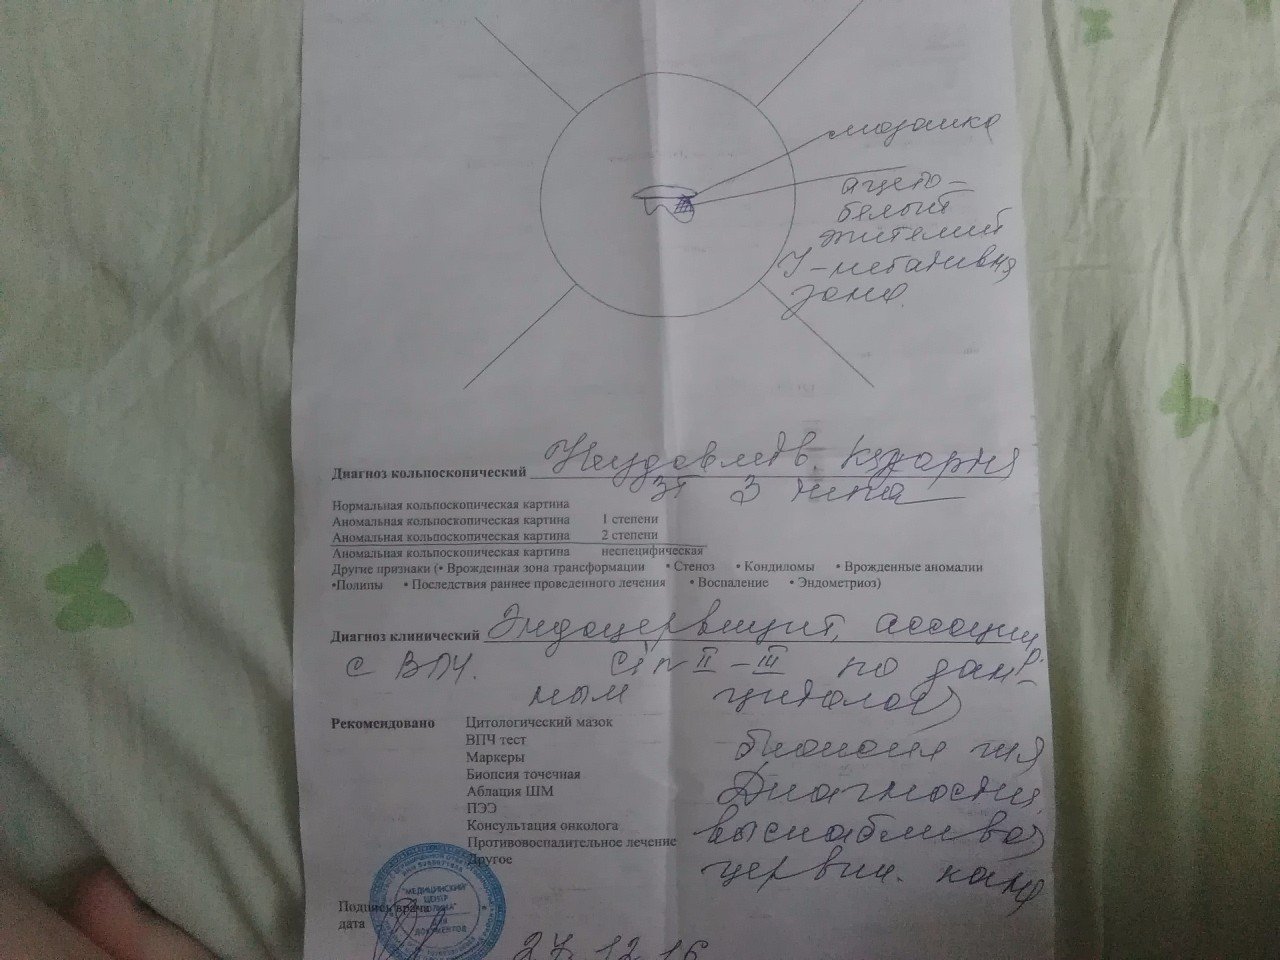 мозаика
ацето-
белый
эпителий
У-негативная
зона.
Диагноз кольпоскопический Неудовлетв. картина
ЗТ 3 типа
Нормальная кольпоскопическая картина
Аномальная кольпоскопическая картина 1 степени
Аномальная кольпоскопическая картина 2 степени
Аномальная кольпоскопическая картина неспецифическая
Другие признаки (• Врожденная зона трансформации • Стеноз • Кондиломы • Врожденные аномалии
•Полипы • Последствия раннее проведенного лечения • Воспаление • Эндометриоз)
Диагноз клинический Эндоцервицит, ассоции
с ВПЧ. CIN II – III по дан-
ным цитологи
Рекомендовано Цитологический мазок
ВПЧ тест
Маркеры
Биопсия точечная
Аблация ШМ
ПЭЭ
Консультация онколога
Противовоспалительное лечение
Другое
биопсия
Диагностич.
выскабливa
цервик. кана
"МЕДИЦИНСКИЙ
ЦЕНТР
ДОКУМЕНТОВ
Подпись врача
дата 27.12.16